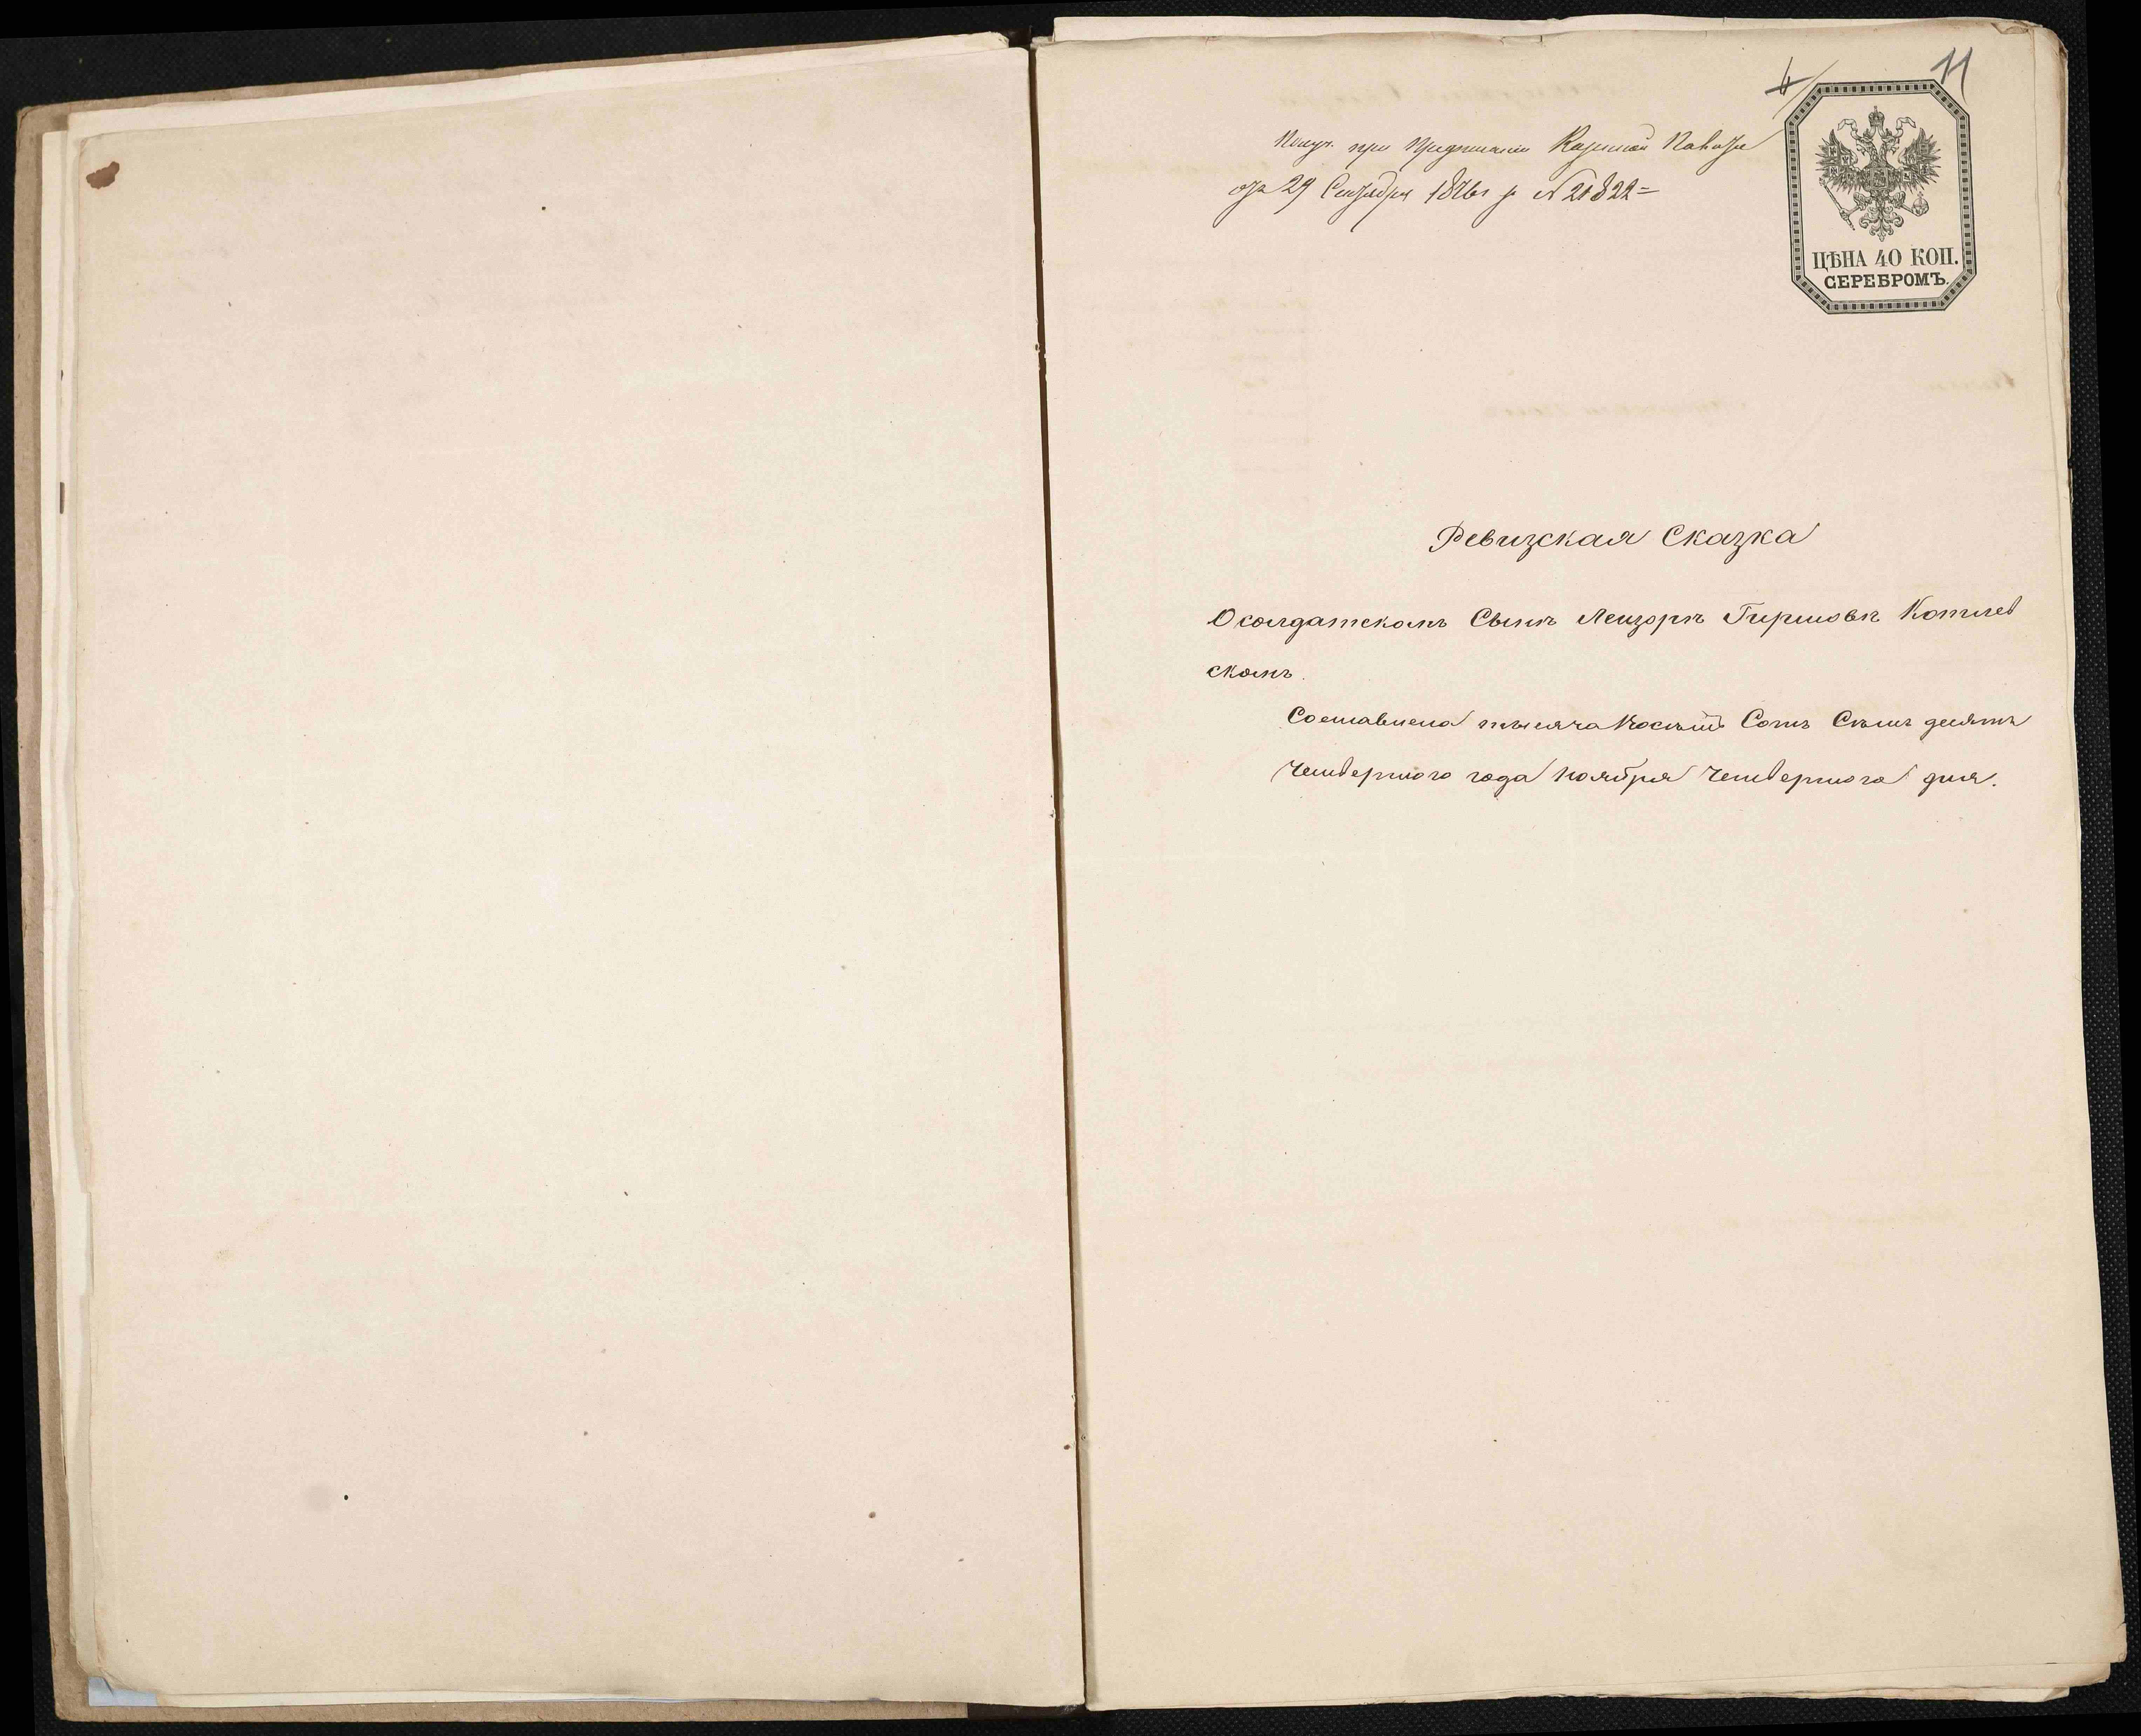 11
Получ. при Предписании Казенной Палаты
отъ 29 Сентября 1876 г за № 21822=
ЦѢНА 40 КОП.
СЕРЕБРОМЪ.
Ревизская Сказка
О солдатскомъ Сынѣ Лейзорѣ Гиршовѣ Котлев
скомъ.
Составлена тысяча Восемь Сотъ Семь десятъ
Четвертого года Ноября Четвертого дня.